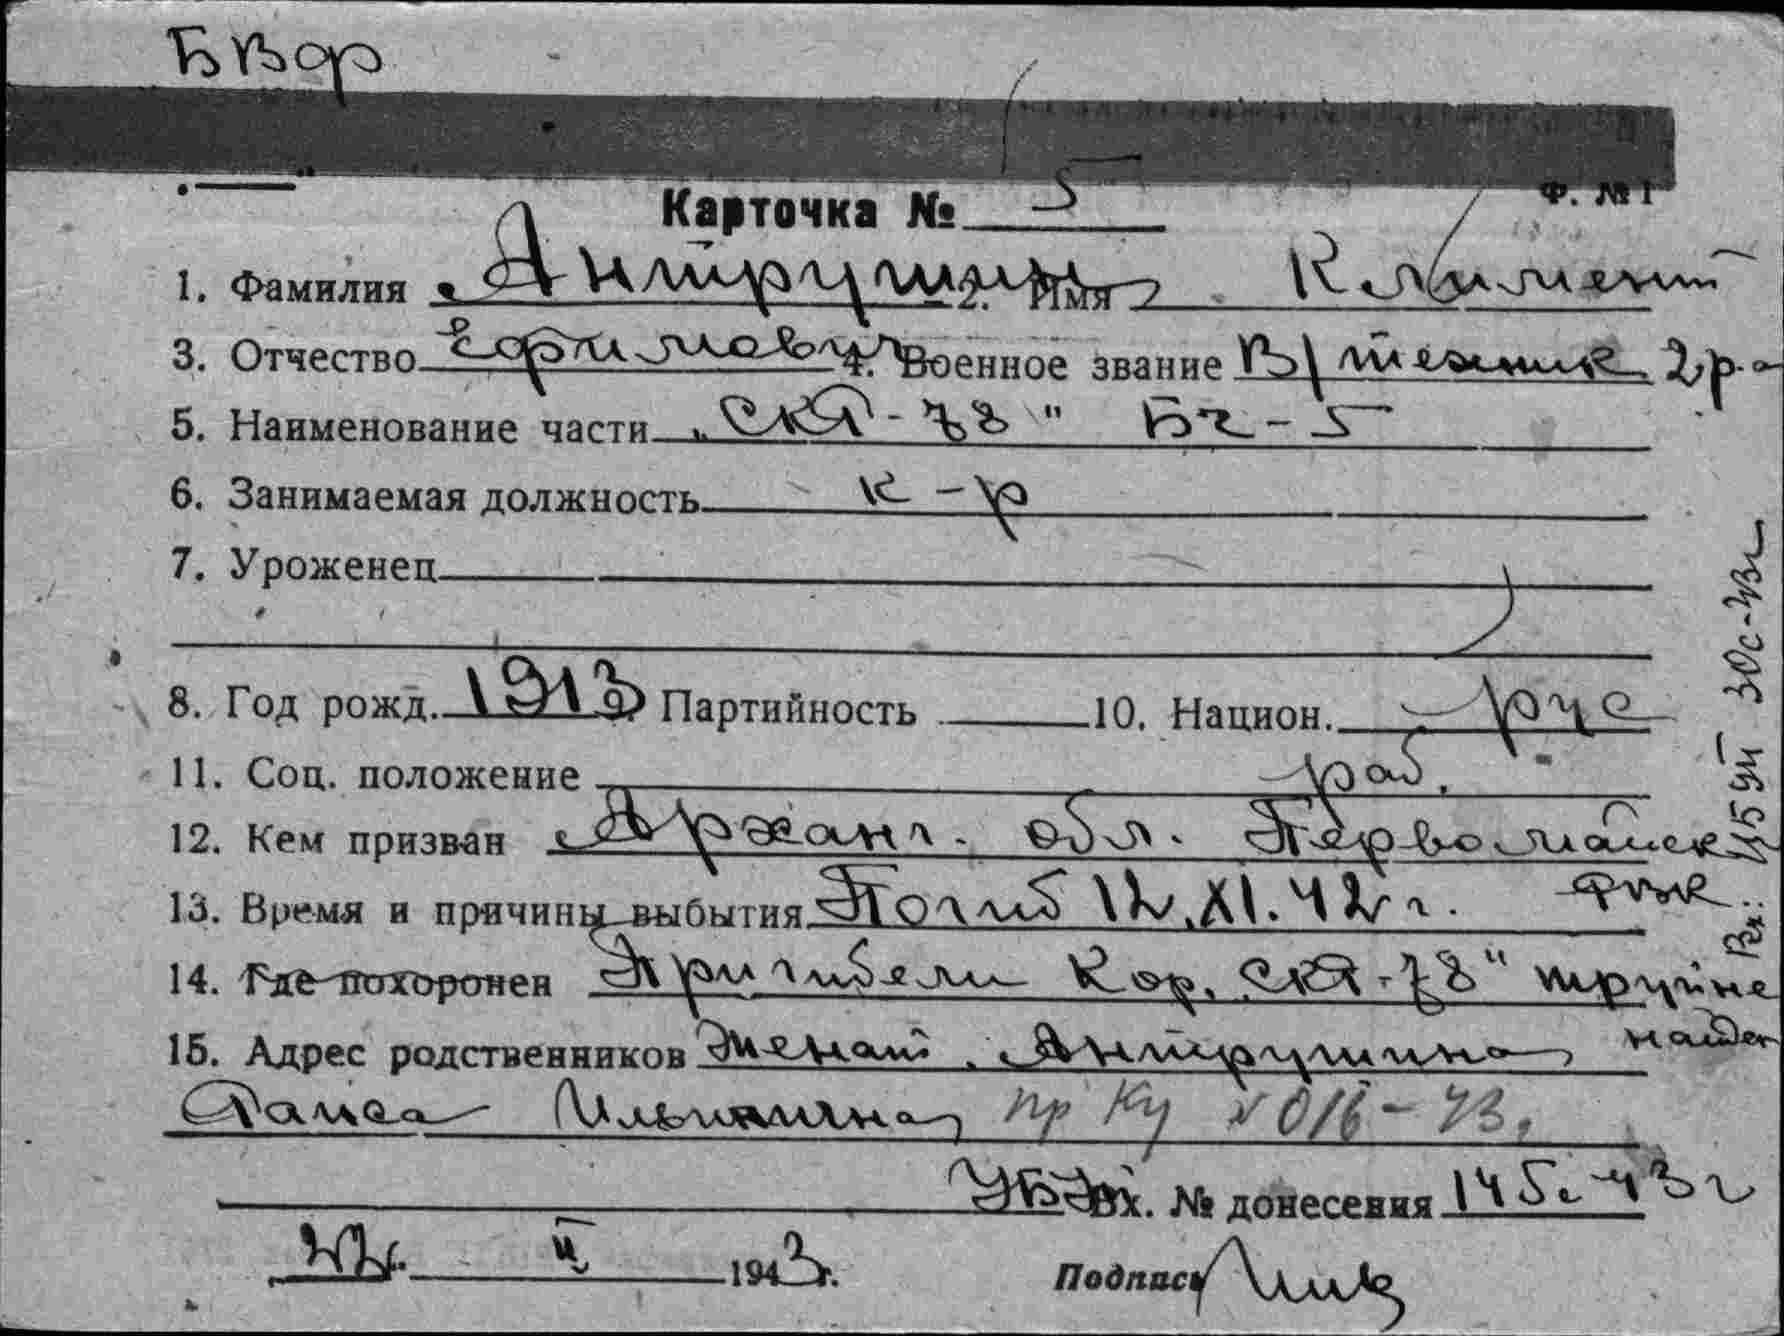 БВор
Ф. № 1
Карточка № 5
1. Фамилия Антрушин 2. Имя Климент
3. Отчество Ефимович 4. Военное звание В/техник 2 р-а
5. Наименование части „СКА-78" БЧ-5
6. Занимаемая должность к-р
7. Уроженец
8. Год рожд. 1913 9. Партийность 10. Национ. рус
11. Соц. положение раб.
12. Кем призван Арханг. обл. Первомайск
РВК
13. Время и причины выбытия Погиб 12.XI.42 г.
14. Где похоронен При гибели кор. СКА-78" труп не
найден
15. Адрес родственников Женат. Антрушина
Раиса Ильинична, пр Ку № 016-43.
УБЭ Вх. № донесения 145с 43 г
22. II 1943 г. Подпись
Вх. 30с-43г